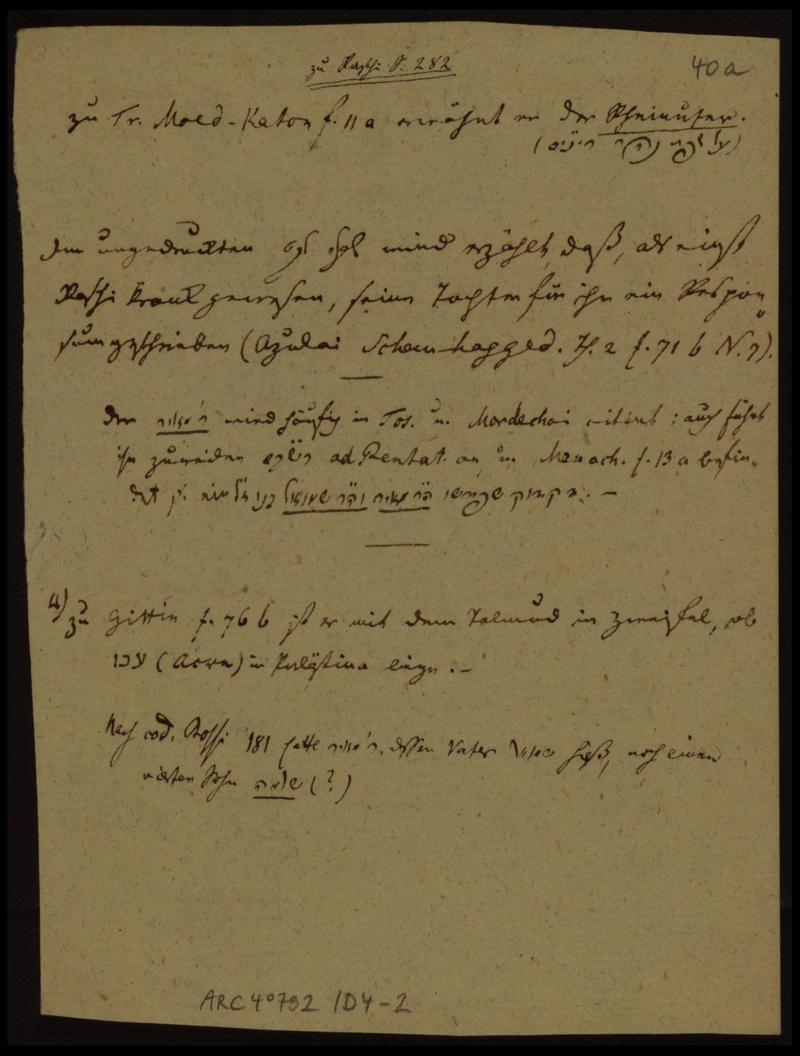 zu Raschi S. 282
40a
zu Tr. Moed-Katon f. 11a erwähnt er der Rheinufer.
(על שפת נהר רינוס)
Im ungedruckten wird erzählt, daß, als einst
Raschi krank gewesen, seine Tochter für ihn ein Respon„
sum geschrieben (Azulai Schem hagged. Th. 2 f. 71 b N. 7).
Der ר' מאיר wird häufig in Tos. u. Mordechai citirt; auch führt
ihn zuweilen רשב״ם ad Pentat. an, u. Menach. f. 13a befin„
det
4) zu Gittin f. 76 b ist er mit dem Talmud in Zweifel, ob
עכו (Acre) in Palästina liege. –
Nach cod. Rossi 181 hatte ר' מאיר, dessen Vater שמואל hieß, noch einen
vierten Sohn שלמה (?)
ARC 4°792 /D4-2